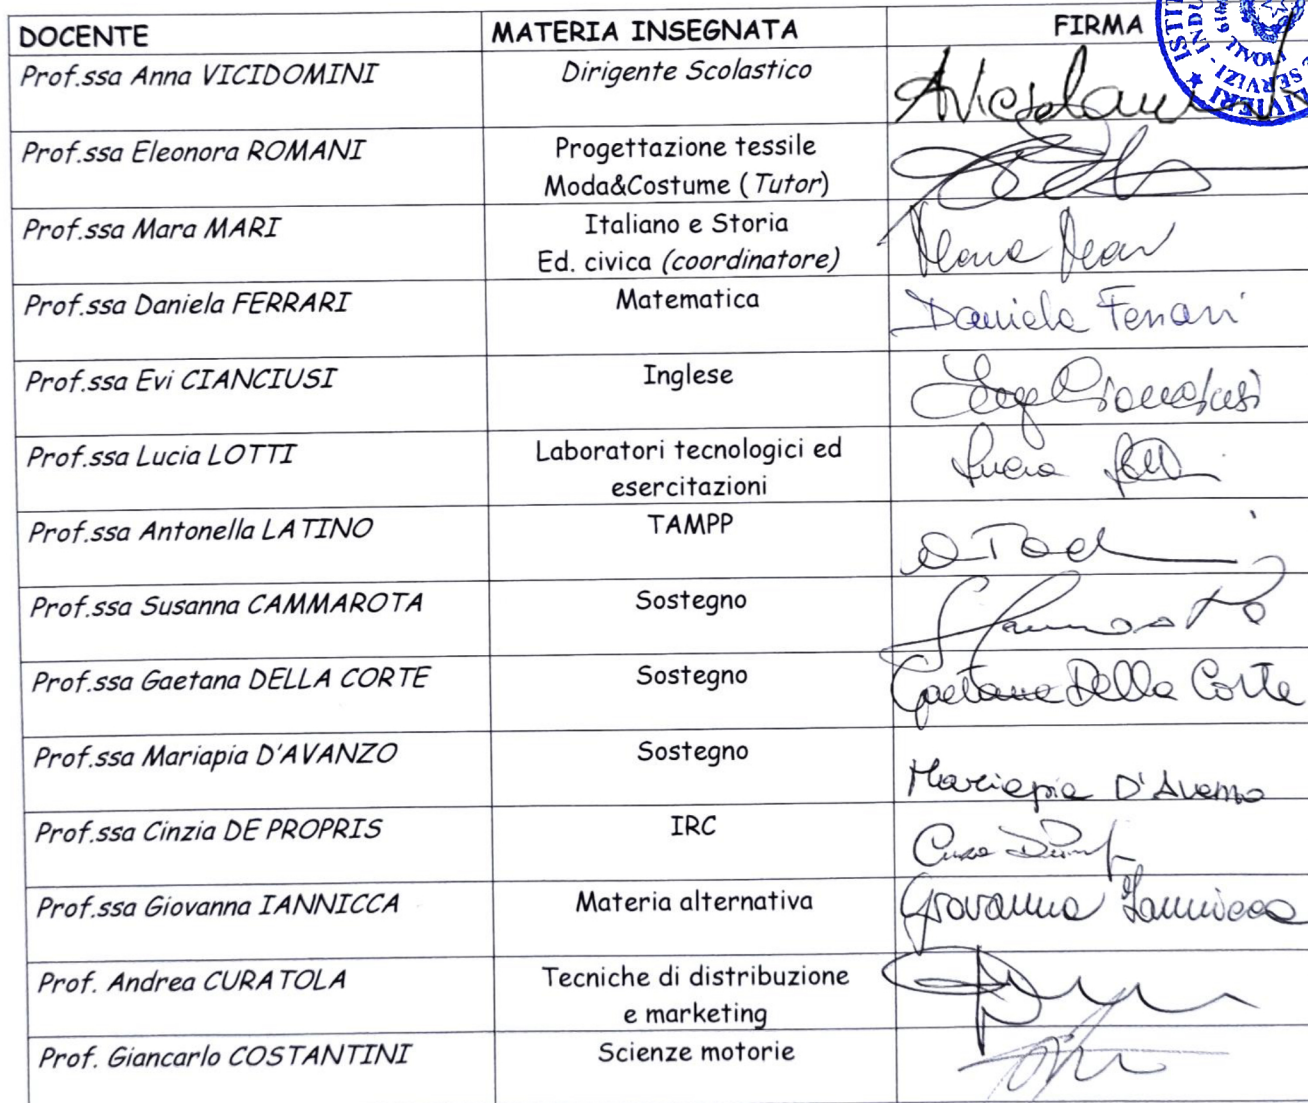 DOCENTE MATERIA INSEGNATA FIRMA
Prof.ssa Anna VICIDOMINI Dirigente Scolastico
Prof.ssa Eleonora ROMANI Progettazione tessile
Moda&Costume (Tutor)
Prof.ssa Mara MARI Italiano e Storia
Ed. civica (coordinatore)
Prof.ssa Daniela FERRARI Matematica Daniela Ferrari
Prof.ssa Evi CIANCIUSI Inglese
Prof.ssa Lucia LOTTI Laboratori tecnologici ed
esercitazioni Lucia Lotti
Prof.ssa Antonella LATINO TAMPP
Prof.ssa Susanna CAMMAROTA Sostegno
Prof.ssa Gaetana DELLA CORTE Sostegno Gaetana Della Corte
Prof.ssa Mariapia D'AVANZO Sostegno Mariapia D'Avanzo
Prof.ssa Cinzia DE PROPRIS IRC
Prof.ssa Giovanna IANNICCA Materia alternativa Giovanna Iannicca
Prof. Andrea CURATOLA Tecniche di distribuzione
e marketing
Prof. Giancarlo COSTANTINI Scienze motorie
TIVOLI